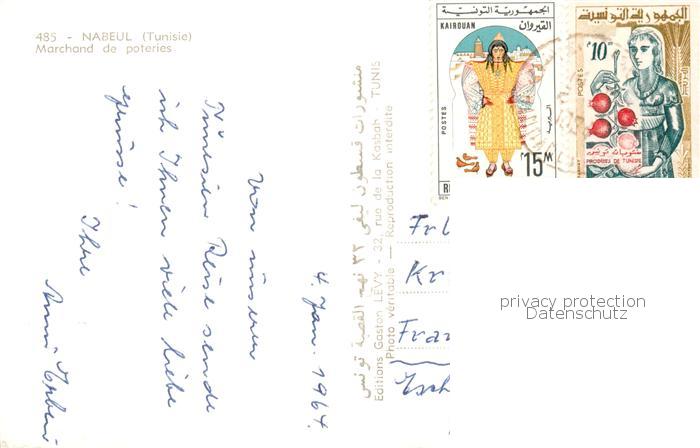 485 - NABEUL (Tunisie)
Marchand de poteries
4. Jan. 1964.
Von unserer
Tunesien Reise sende
ich Ihnen viele liebe
Grüsse!
Ihre
منشورات قسطون ليفي ٣٢ نهج القصبة تونس
Editions Gaston LÉVY - 32, rue de la Kasbah - TUNIS
Photo véritable — Reproduction interdite
الجمهورية التونسية
KAIROUAN
القيروان
POSTES
البريد
15M
الجمهورية التونسية
10M
POSTES
منتوجات تونس
PRODUITS DE TUNISIE
Frl
Kr
Fra
Esch
privacy protection
Datenschutz